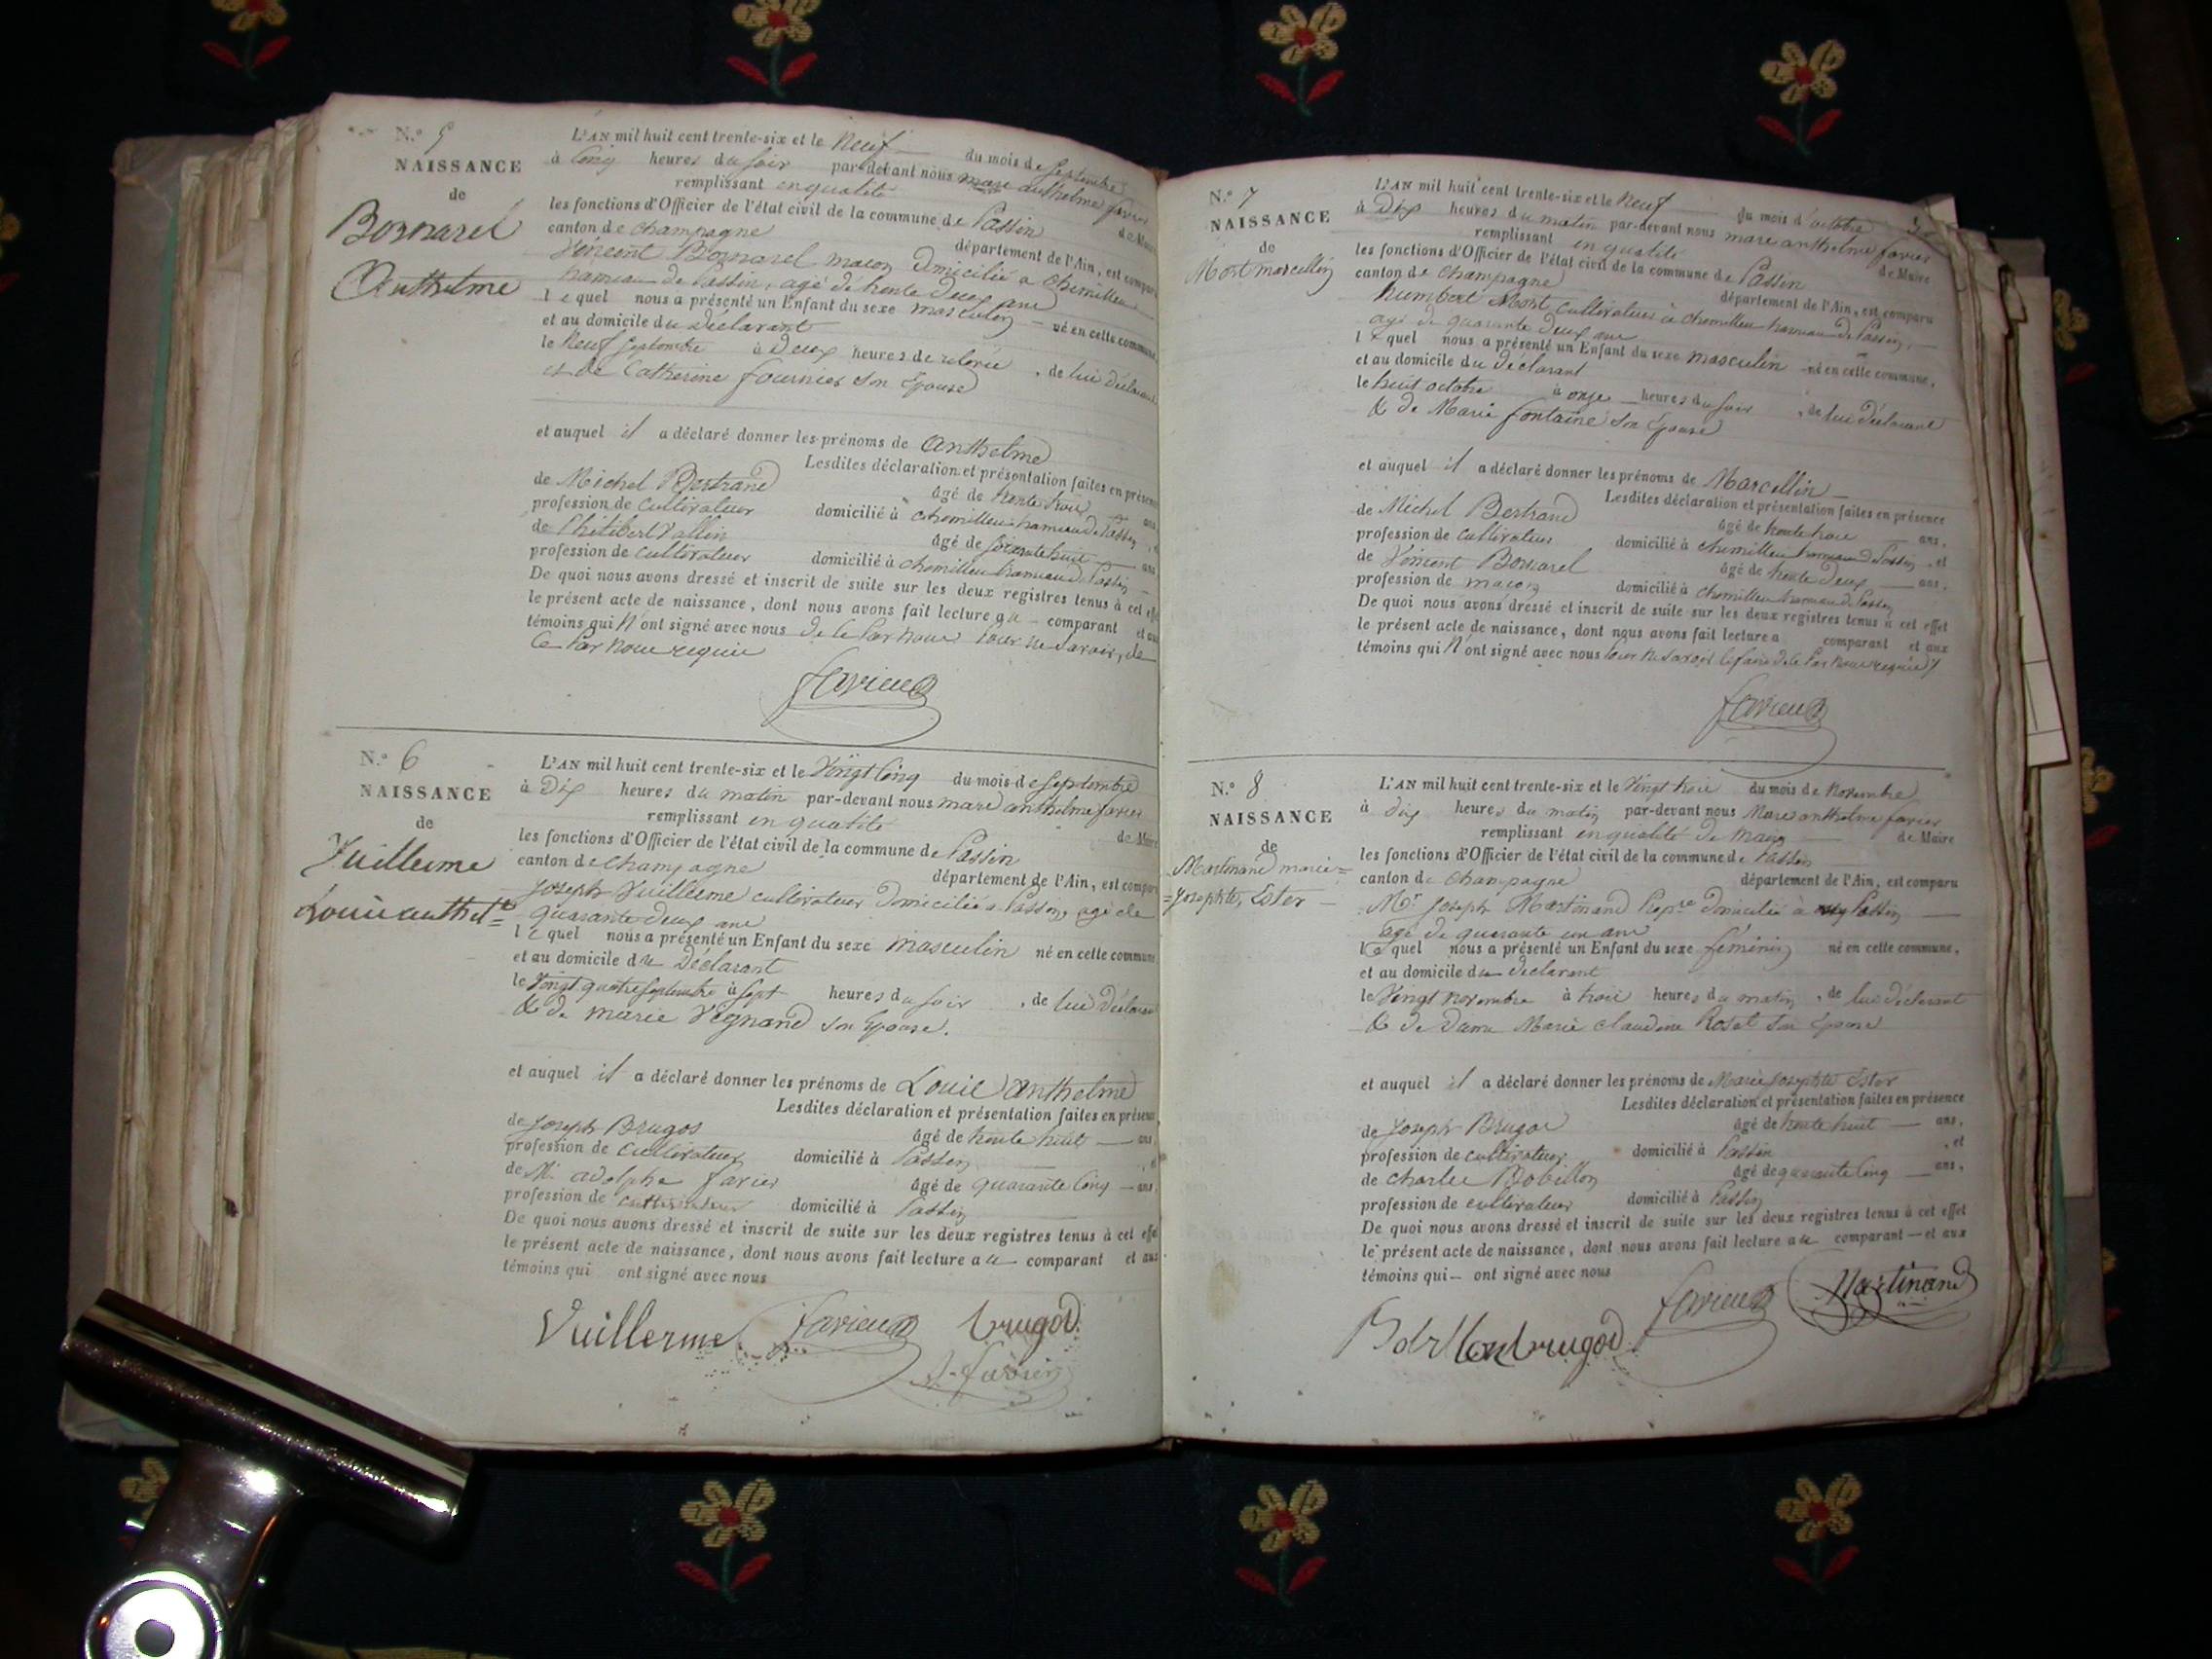 N.º 5
NAISSANCE
de
Bonnarel
Anthelme
L'AN mil huit cent trente-six et le Neuf du mois de septembre
à Cinq heures du soir par-devant nous marc anthelme favier
remplissant en qualité de Maire
les fonctions d'Officier de l'état civil de la commune de Passin
canton de champagne département de l'Ain, est comparu
Vincent Bonnarel maçon domicilié a chemillieu
hameau de Passin, agé de trente deux ans
lequel nous a présenté un Enfant du sexe masculin né en cette commune
et au domicile du Déclarant
le Neuf septembre à Deux heures de relevée, de lui déclarant
et de Catherine fournier son Epouse
et auquel il a déclaré donner les prénoms de anthelme
Lesdites déclaration et présentation faites en présence
de Michel Bertrand âgé de trente trois ans
profession de cultivateur domicilié à chemillieu hameau de Passin
de Philibert Vallin âgé de soixante huit ans
profession de cultivateur domicilié à chemillieu hameau de Passin
De quoi nous avons dressé et inscrit de suite sur les deux registres tenus à cet effet
le présent acte de naissance, dont nous avons fait lecture au comparant et aux
témoins qui N'ont signé avec nous de ce Par nous Pour ne savoir, de
ce Par nous requis
favier
N.º 6
NAISSANCE
de
Vuillerme
Louis anthel.e
L'AN mil huit cent trente-six et le Vingt Cinq du mois de septembre
à Dix heures du matin par-devant nous marc anthelme favier
remplissant en qualité de Maire
les fonctions d'Officier de l'état civil de la commune de Passin
canton de champagne département de l'Ain, est comparu
Joseph Vuillerme cultivateur domicilié a Passin, agé de
quarante deux ans
lequel nous a présenté un Enfant du sexe masculin né en cette commune
et au domicile du Déclarant
le Vingt quatre septembre à sept heures du soir, de lui Déclarant
& de marie Vegnand son Epouse.
et auquel il a déclaré donner les prénoms de Louis anthelme
Lesdites déclaration et présentation faites en présence
de Joseph Brugos âgé de trente huit ans
profession de cultivateur domicilié à Passin
de M. adolphe favier âgé de quarante Cinq ans.
profession de cultivateur domicilié à Passin
De quoi nous avons dressé et inscrit de suite sur les deux registres tenus à cet effet
le présent acte de naissance, dont nous avons fait lecture au comparant et aux
témoins qui ont signé avec nous
Vuillerme favier brugod
A. favier
N.º 7
NAISSANCE
de
Mort marcellin
L'AN mil huit cent trente-six et le Neuf du mois d'octobre
à Dix heures du matin par-devant nous marc anthelme favier
remplissant en qualité de Maire
les fonctions d'Officier de l'état civil de la commune de Passin
canton de champagne département de l'Ain, est comparu
humbert Mort cultivateur à chemillieu hameau de Passin,
agé de quarante deux ans
lequel nous a présenté un Enfant du sexe masculin né en cette commune,
et au domicile du déclarant
le huit octobre à onze heures du soir, de lui déclarant
& de Marie fontaine son Epouse
et auquel il a déclaré donner les prénoms de Marcellin
Lesdites déclaration et présentation faites en présence
de Michel Bertrand âgé de trente trois ans,
profession de cultivateur domicilié à chemillieu hameau de Passin, et
de Vincent Bonnarel âgé de trente deux ans.
profession de maçon domicilié à chemillieu hameau de Passin
De quoi nous avons dressé et inscrit de suite sur les deux registres tenus à cet effet
le présent acte de naissance, dont nous avons fait lecture a comparant et aux
témoins qui N'ont signé avec nous Pour ne savoir le faire de ce Par nous requis
favier
N.º 8
NAISSANCE
de
Martinand marie=
=Josephte, Ester
L'AN mil huit cent trente-six et le Vingt trois du mois de novembre
à dix heures du matin par-devant nous Marc anthelme favier
remplissant en qualité de Maire de Maire
les fonctions d'Officier de l'état civil de la commune de Passin
canton de champagne département de l'Ain, est comparu
Mr Joseph Martinand Propre domicilié à Passin
agé de quarante un ans
lequel nous a présenté un Enfant du sexe féminin né en cette commune,
et au domicile du declarant
le Vingt novembre à trois heures du matin, de lui déclarant
& de Dame Marie claudine Roset son Epouse
et auquel il a déclaré donner les prénoms de Marie Josephte Ester
Lesdites déclaration et présentation faites en présence
de Joseph Brugod âgé de trente huit ans,
profession de cultivateur domicilié à Passin, et
de charles Bobillon âgé de quarante Cinq ans,
profession de cultivateur domicilié à Passin
De quoi nous avons dressé et inscrit de suite sur les deux registres tenus à cet effet
le présent acte de naissance, dont nous avons fait lecture au comparant et aux
témoins qui ont signé avec nous
Bobillon brugod favier Martinand